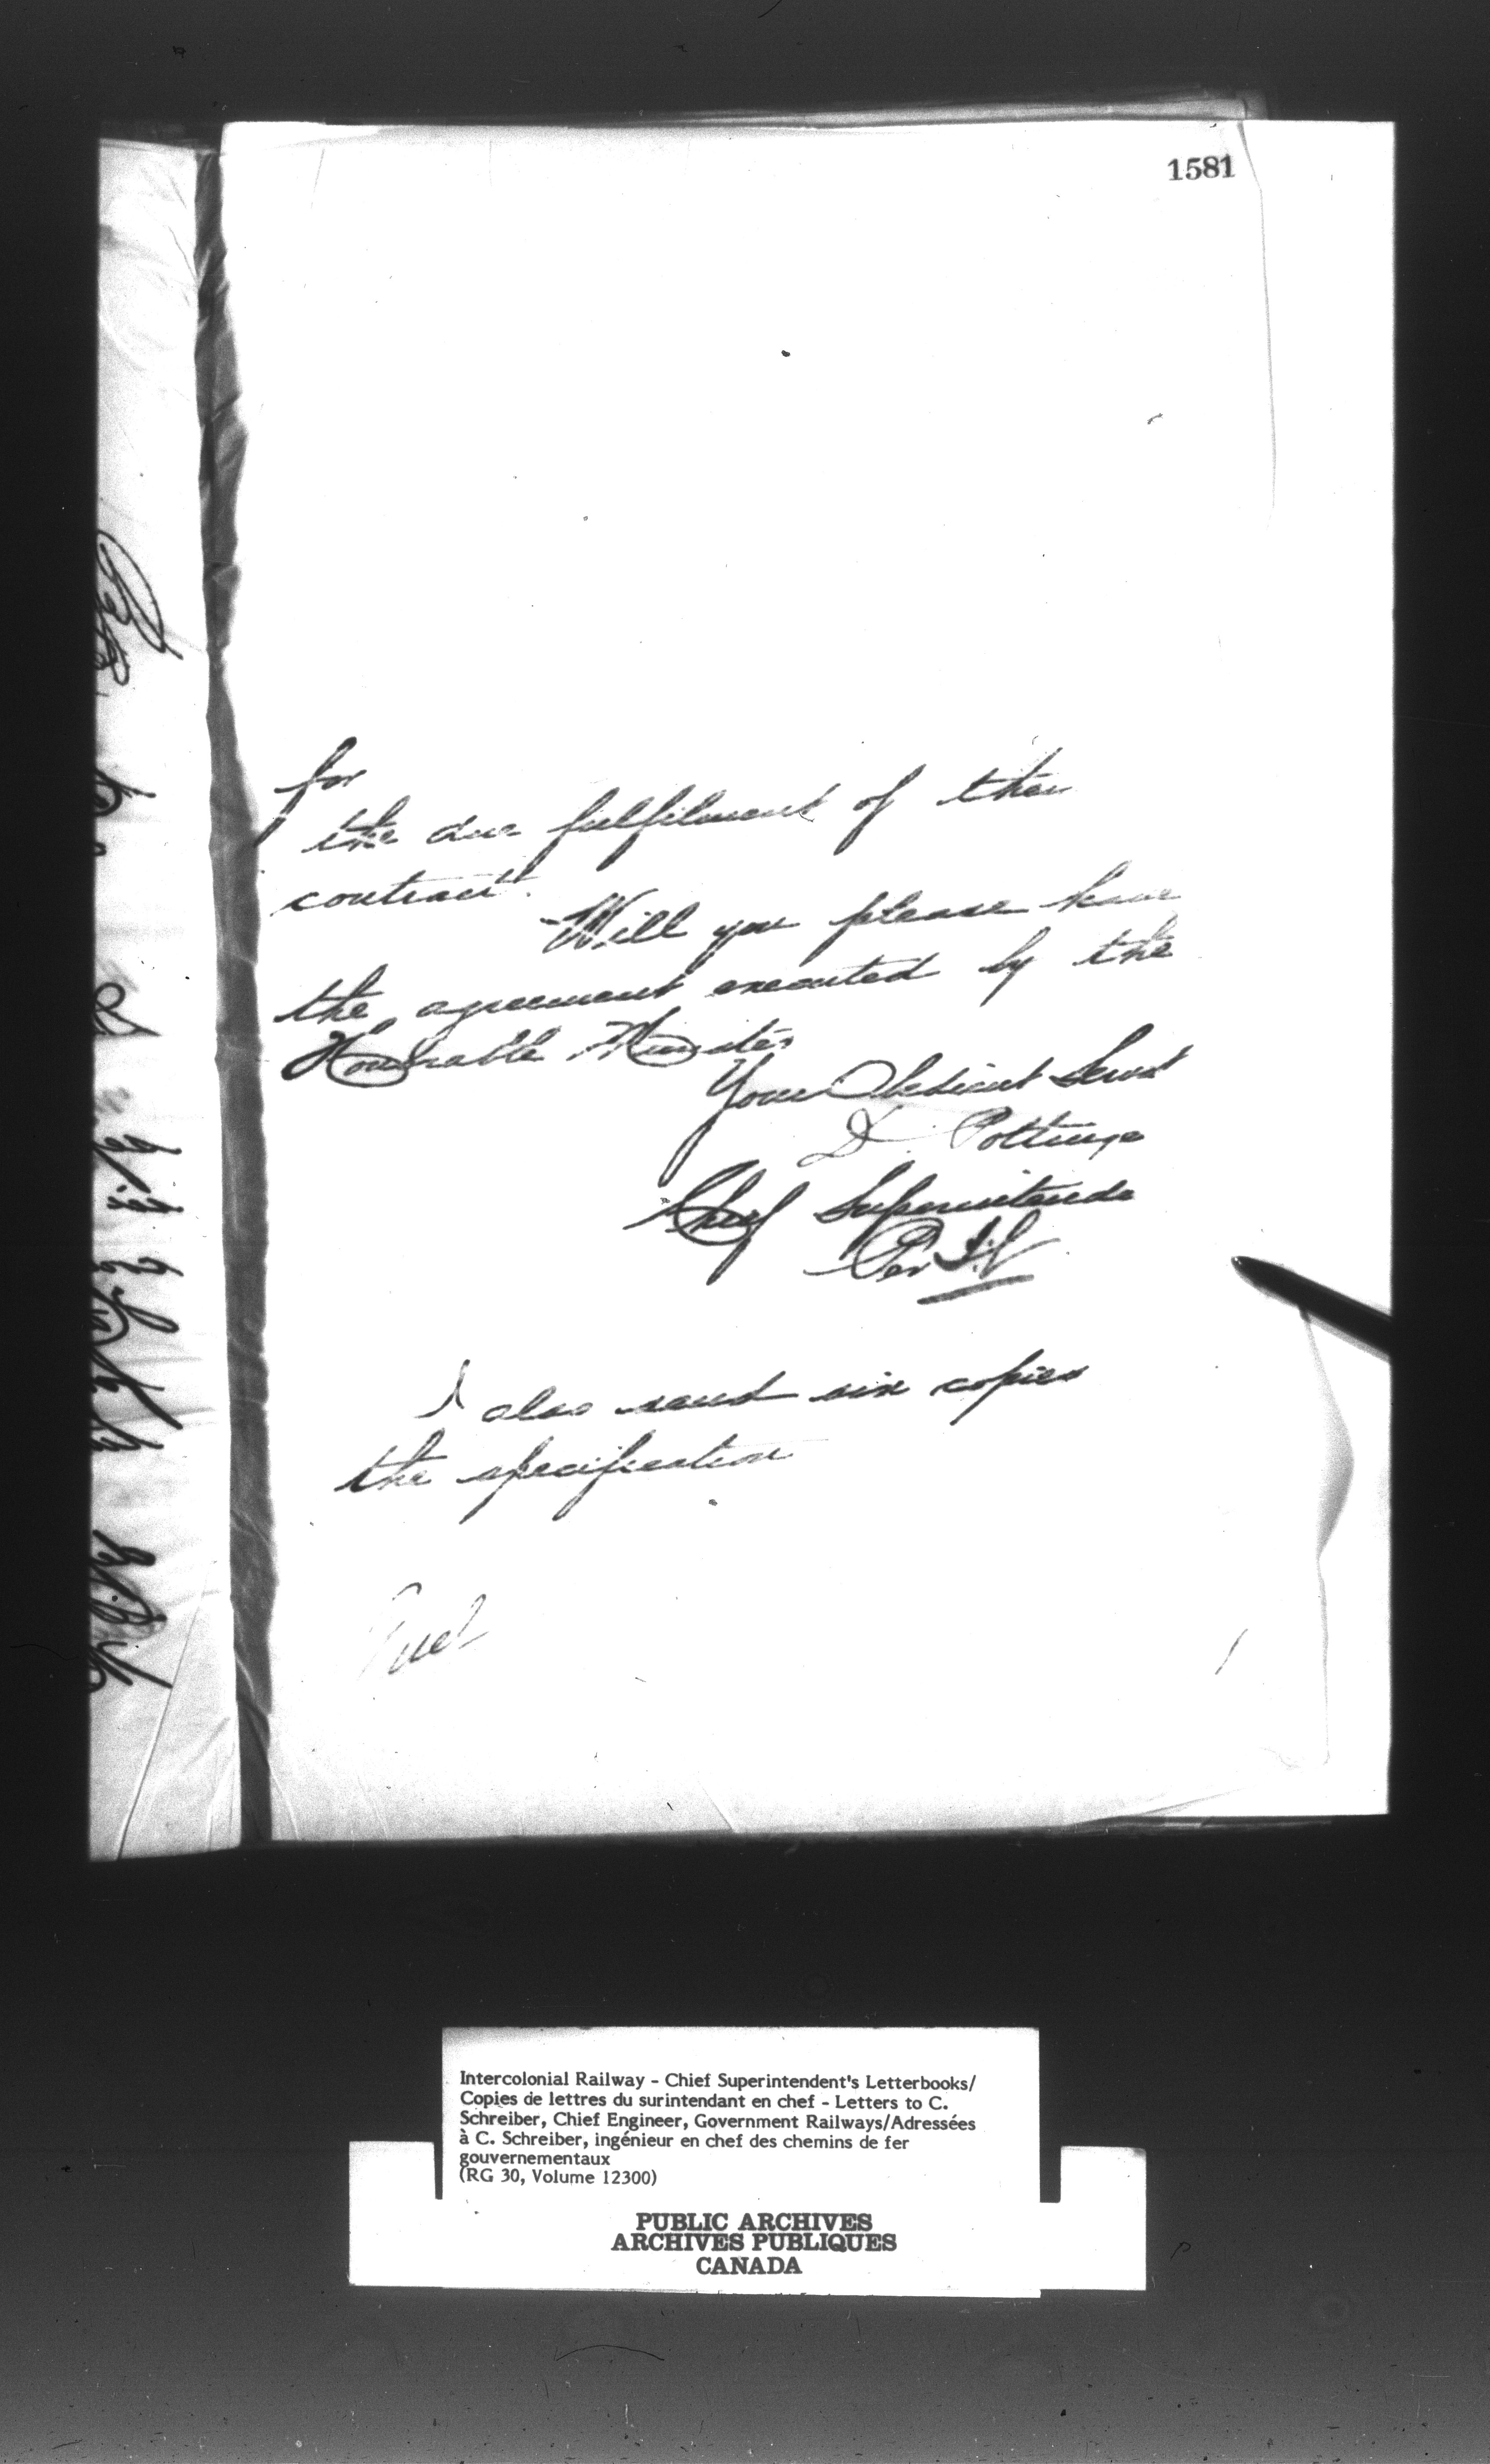 1581
for
the due fulfilment of their
contract.
Will you please have
the agreement executed by the
Honorable Minister
Your Obedient Servt
D. Pottinge
Chief Superintende
Per
I also send six copies
the specification
Intercolonial Railway - Chief Superintendent's Letterbooks/
Copies de lettres du surintendant en chef - Letters to C.
Schreiber, Chief Engineer, Government Railways/Adressées
à C. Schreiber, ingénieur en chef des chemins de fer
gouvernementaux
(RG 30, Volume 12300)
PUBLIC ARCHIVES
ARCHIVES PUBLIQUES
CANADA